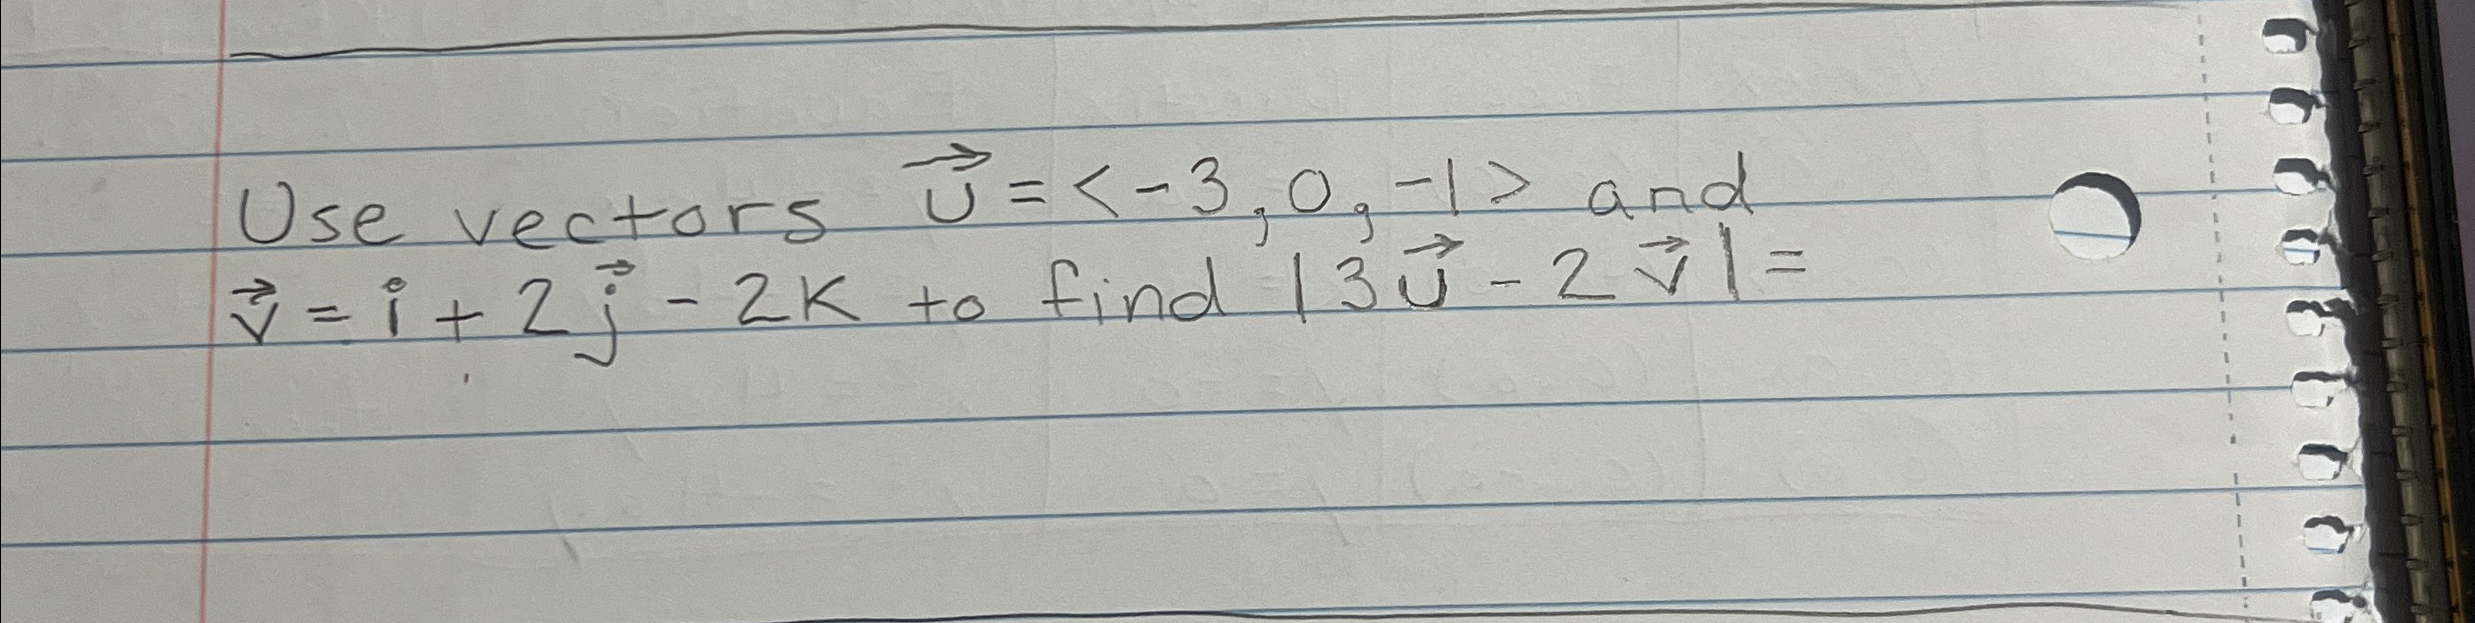 Use vectors \vec{U} = <-3, 0, -1> and
\vec{v} = i + 2\vec{j} - 2K to find |3\vec{U} - 2\vec{v}| =